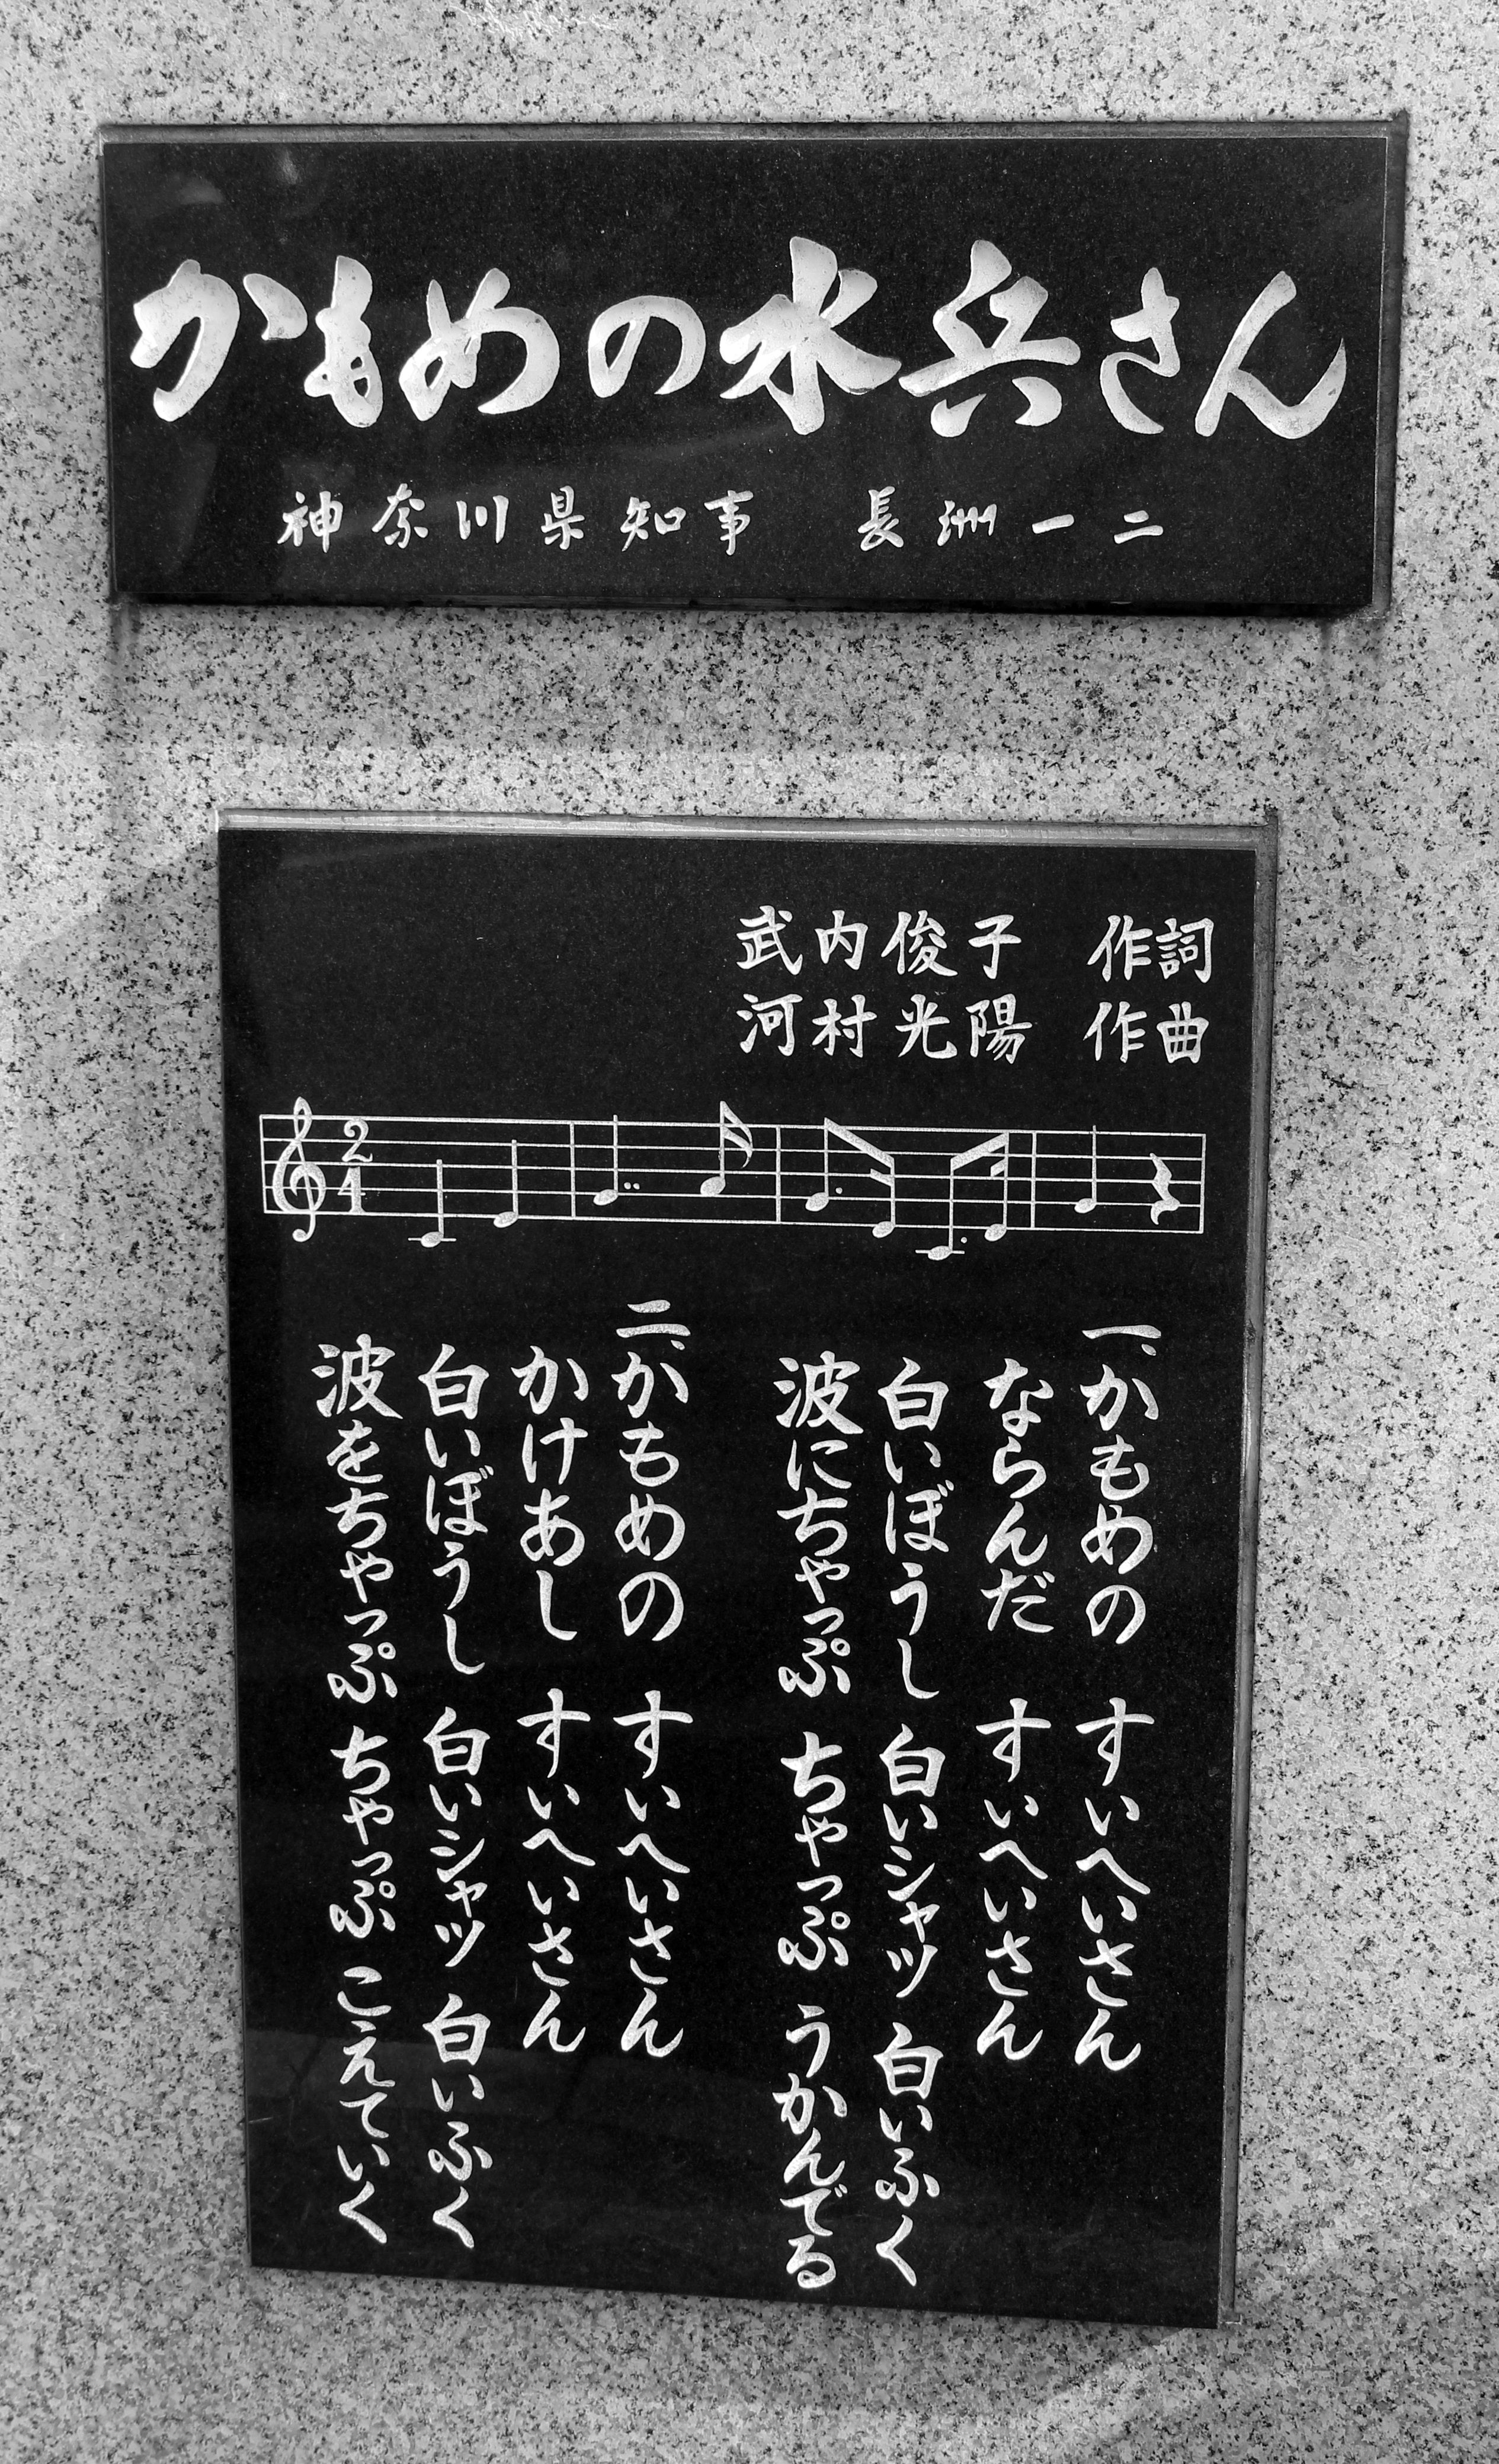 かもめの水兵さん
神奈川県知事 長洲一二
武内俊子 作詞
河村光陽 作曲
2
4
一、かもめの すいへいさん
ならんだ すいへいさん
白いぼうし 白いシャツ 白いふく
波にちゃっぷ ちゃっぷ うかんでる
二、かもめの すいへいさん
かけあし すいへいさん
白いぼうし 白いシャツ 白いふく
波をちゃっぷ ちゃっぷ こえていく